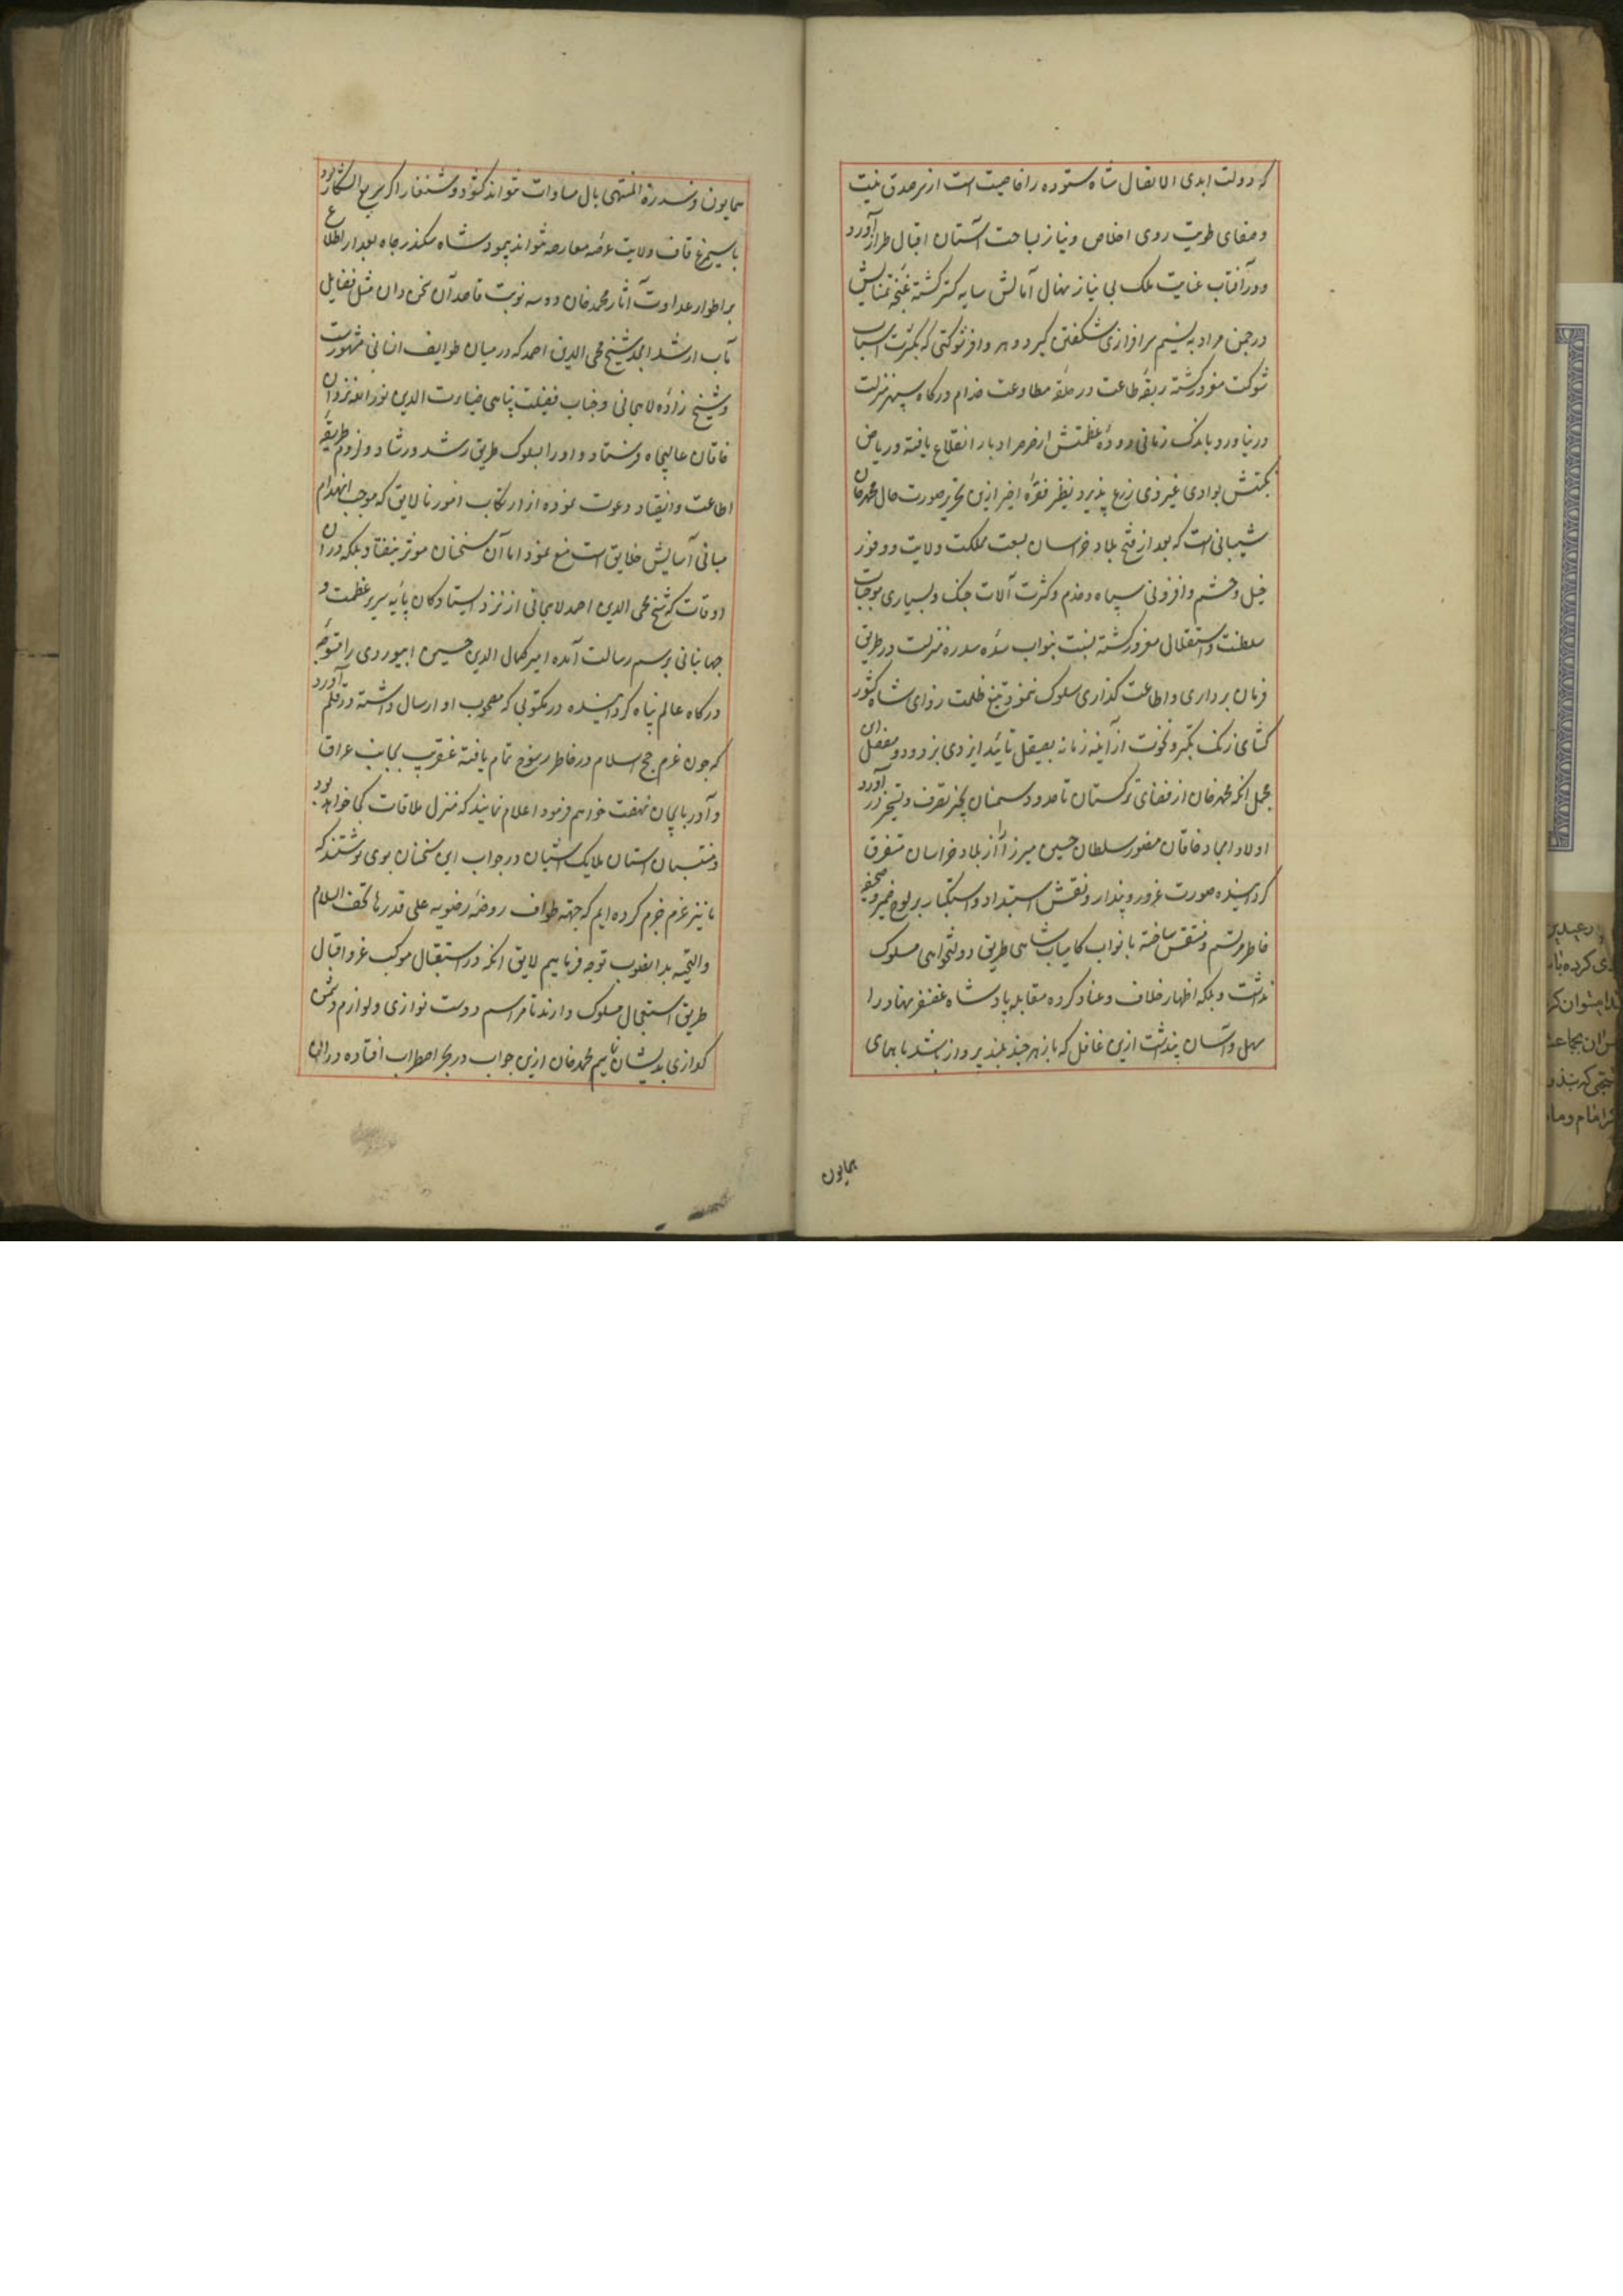 که دولت ابدی الاتصال شاه ستوده را خاصیت است از سر صدق نیت
و صفای طویت روی اخلاص و نیاز بساحت آستان اقبال طراز آورد
و در آفتاب عنایت ملک بی نیاز نهال آمالش سایه گستر گشته غنچه تمنایش
در چمن مراد به نسیم سرافرازی شکفتن گیرد و هر وافر شوکتی که بکثرت اسباب
شوکت مغرور گشته ربقه طاعت در حلقه مطاوعت خدام درگاه سپهر منزلت
در نیاورد باندک زمانی دوحه عظمتش از صرصر ادبار انقلاع یافته و ریاض
نکبتش بوادی غیر ذی زرع پذیرد نظیر فقره اخیر ازین تحریر صورت حال محمدخان
شیبانی است که بعد از فتح بلاد خراسان بسعت مملکت ولایت و وفور
خیل و حشم و افزونی سپاه و خدم و کثرت آلات جنگ و بسیاری موجبات
سلطنت و استقلال مغرور گشته نسبت بنواب سده سدره منزلت در طریق
فرمان برداری و اطاعت گذاری سلوک ننمود و تیغ ظلمت زدای شاه کشور
کشای زنگ تکبر و نخوت از آینه زمانه بصیقل تائید ایزدی بزدود و مفصل این
مجمل انکه محمدخان از فضای ترکستان تا حدود سمنان بحیز تصرف و تسخیر در آورد
اولاد امجاد خاقان مغفور سلطان حسین میرزا را از بلاد خراسان متفرق
گردانیده صورت غرور و پندار و نقش استبداد و استکبار بر لوح ضمیر و صحیفه
خاطر مرتسم و منتقش ساخته با نواب کامیاب شاهی طریق دولتخواهی مسلوک
نداشت و بلکه اظهار خلاف و عناد کرده مقابله پادشاه غضنفر نهاد را
سهل و آسان پنداشت ازین غافل که باز هر چند بلند پرواز باشد با همای
همایون
همایون و سدرة المنتهی بال مساوات نتواند گشود و شنقار اگر سریع الشکار بود
با سیمرغ قاف ولایت عرصه معارضه نتواند پیمود شاه سکندر جاه بعد از اطلاع
بر اطوار عداوت آثار محمدخان دو سه نوبت قاصدان سخن دان مثل فضایل
مآب ارشد امجد شیخ محی الدین احمد که در میان طوایف انسانی مشهورست
و شیخ زاده لاهجانی و جناب فضیلت پناهی ضیاءت الدین نورالله نزد آن
خاقان عالیجاه فرستاد و او را بسلوک طریق رشد و رشاد و لزوم طریقه
اطاعت و انقیاد دعوت نموده از ارتکاب امور نالایق که موجب انهدام
مبانی آسایش خلایق است منع نمود اما آن سخنان موثر نیفتاد بلکه در آن
اوقات که شیخ محی الدین احمد لاهجانی از نزد ایستادگان پایه سریر عظمت و
جهانبانی برسم رسالت آمده امیر کمال الدین حسین ابیوردی را متوجه
درگاه عالم پناه گردانیده در مکتوبی که مصحوب او ارسال داشته در قلم آورد
که چون عزم حج اسلام در خاطر رسوخ تمام یافته عنقریب بجانب عراق
و آذربایجان نهضت خواهم فرمود اعلام نمایند که منزل ملاقات کجا خواهد بود
و منتسبان آستان ملایک آشیان در جواب این سخنان بوی نوشتند که
ما نیز عزم جزم کرده ایم که جهته طواف روضه رضویه علی قدرها تحف السلام
والتحیه بدانصوب توجه فرماییم لایق انکه در استقبال موکب عز و اقبال
طریق استعجال مسلوک دارند تا مراسم دوست نوازی و لوازم دشمن
گدازی بدیشان نماییم محمدخان ازین جواب در بحر اضطراب افتاده در آن